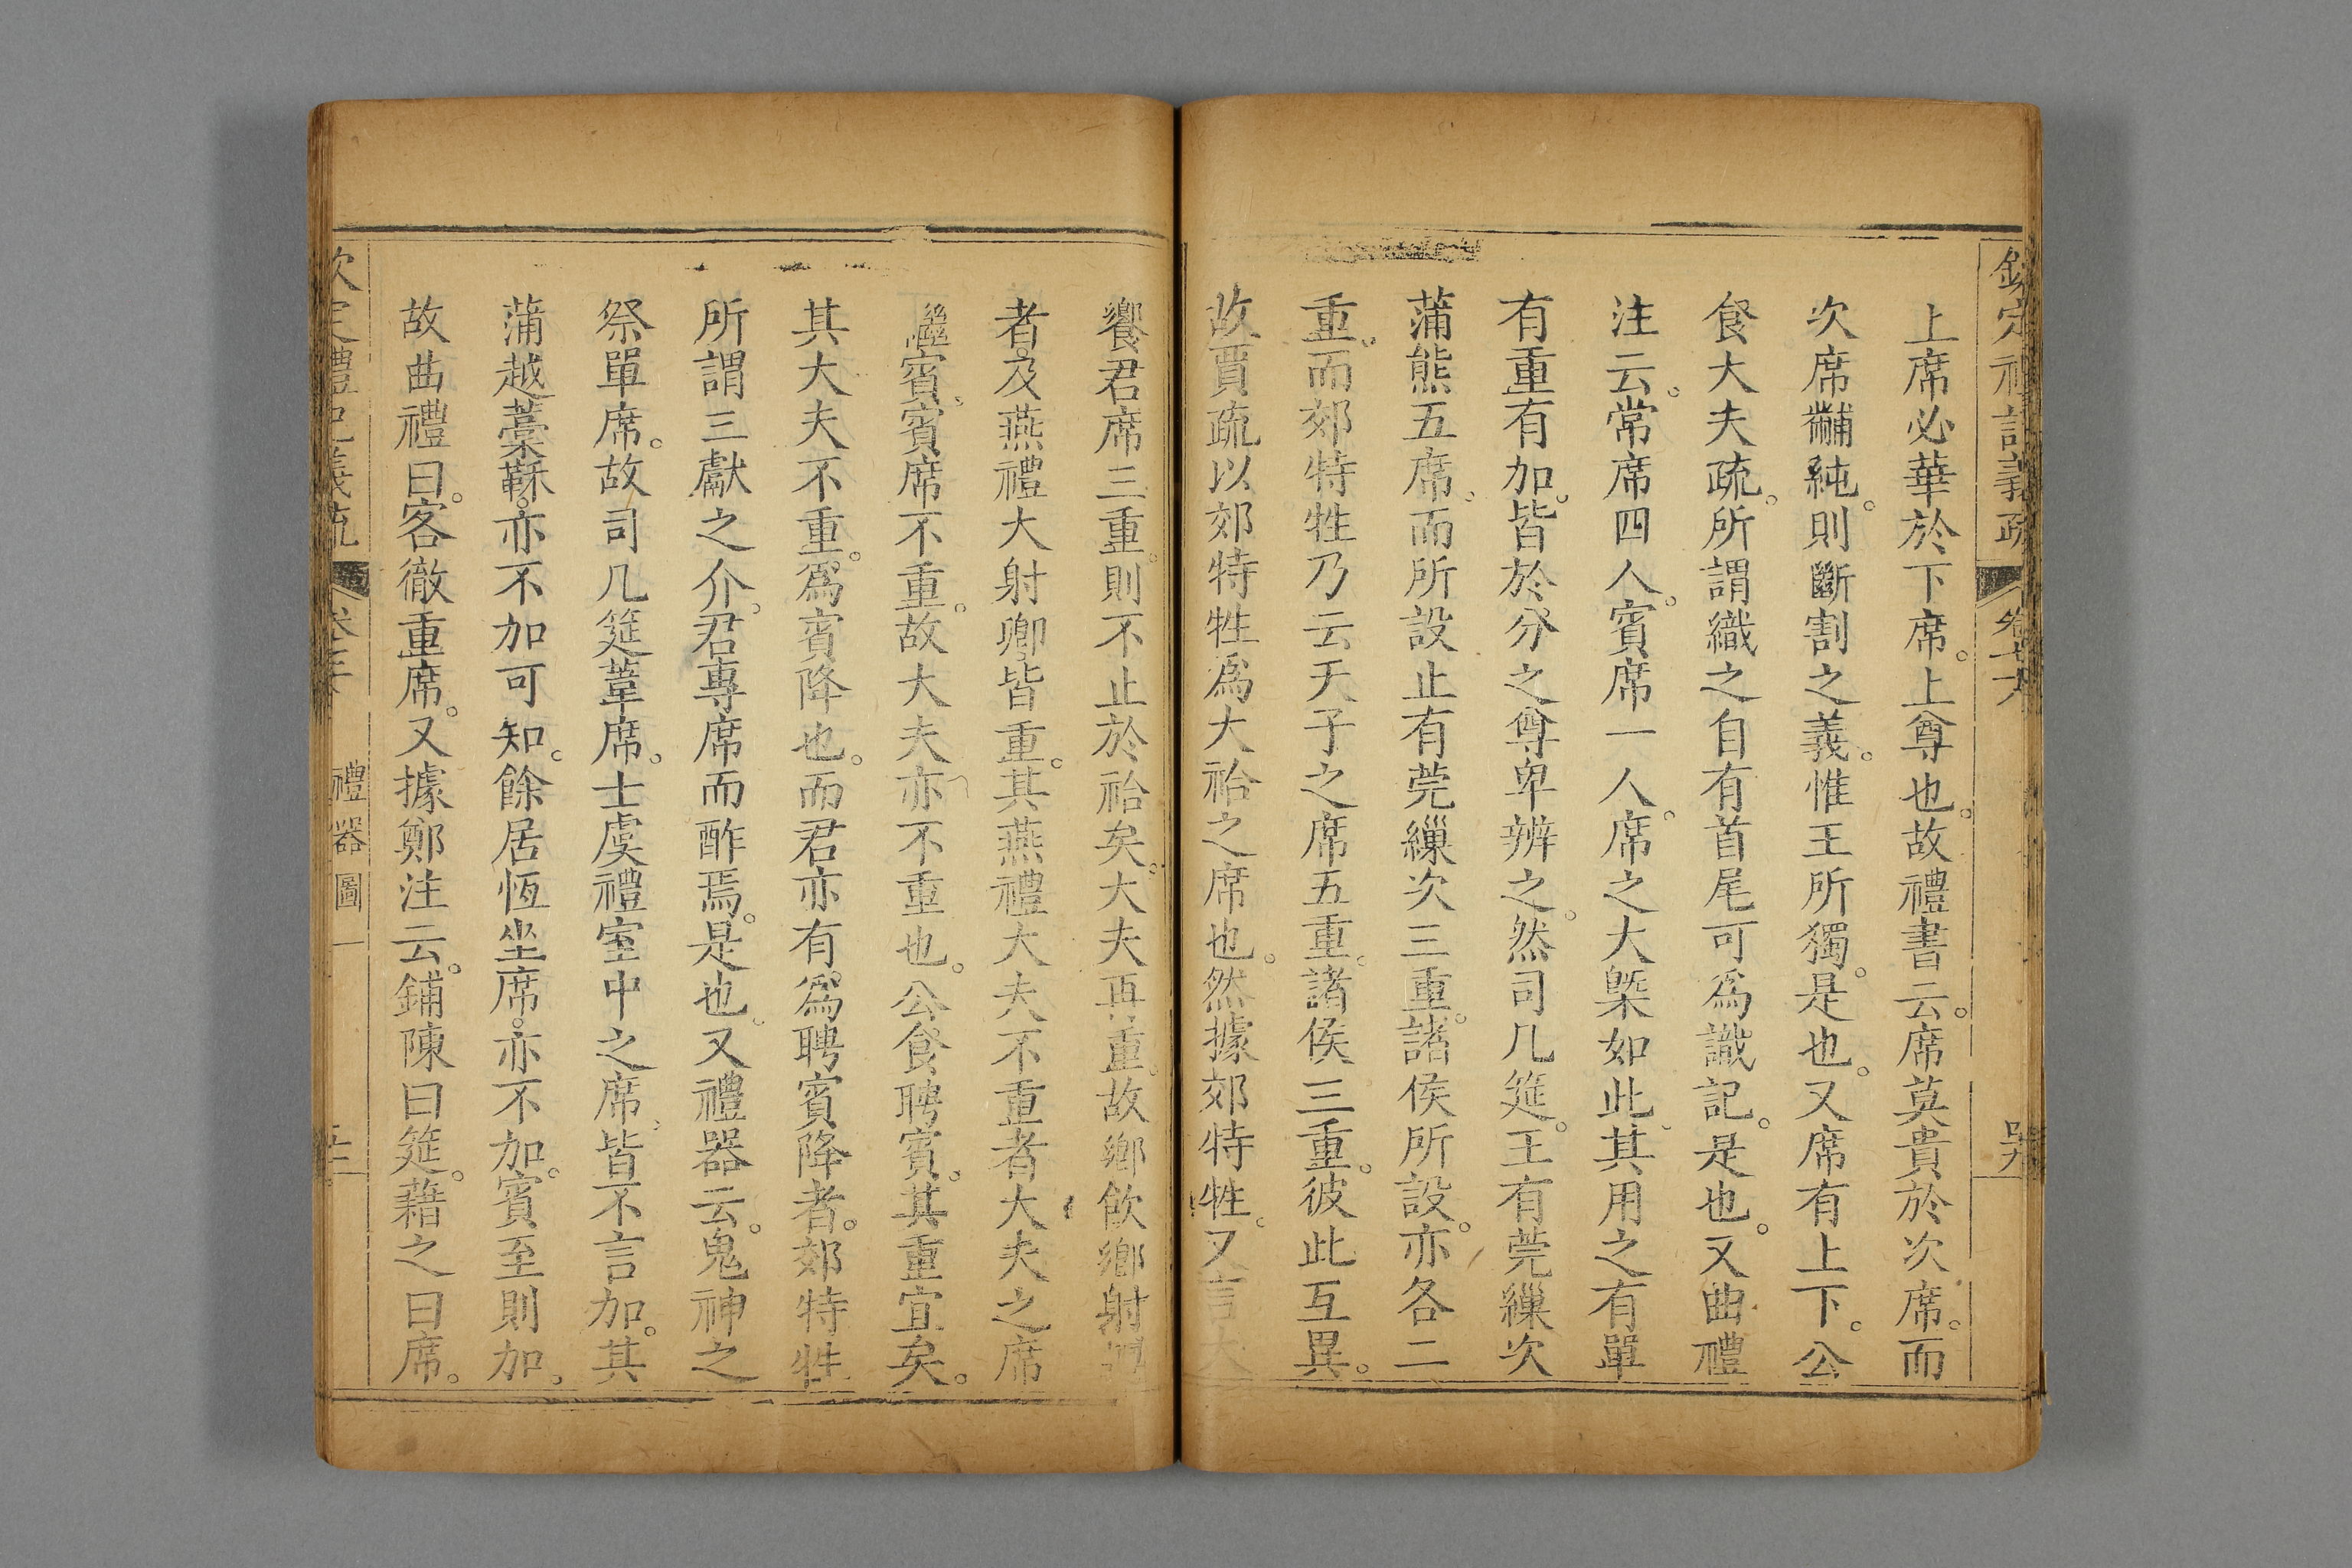 欽定禮記義疏
上席必華於下席。上尊也。故禮書云。席莫貴於次席。而
次席黼純。則斷割之義。惟王所獨。是也。又席有上下。公
食大夫疏。所謂織之自有首尾可爲識記。是也。又曲禮
注云。常席四人。賓席一人。席之大槩如此。其用之有單
有重有加。皆於分之尊卑辨之。然司几筵。王有莞繅次
蒲熊五席。而所設止有莞繅次三重。諸侯所設。亦各二
重。而郊特牲乃云天子之席五重。諸侯三重。彼此互異。
故賈疏以郊特牲爲大祫之席也。然據郊特牲。又言大
饗君席三重。則不止於祫矣。大夫再重。故鄉飲鄉射
者。及燕禮大射卿。皆重。其燕禮大夫不重者大夫之席
繼賓。賓席不重。故大夫亦不重也。公食聘賓。其重宜矣。
其大夫不重。爲賓降也。而君亦有爲聘賓降者。郊特牲
所謂三獻之介。君專席而酢焉。是也。又禮器云。鬼神之
祭單席。故司几筵葦席。士虞禮室中之席。皆不言加。其
蒲越藁鞂。亦不加可知。餘居恆坐席。亦不加。賓至則加。
故曲禮曰。客徹重席。又據鄭注云。鋪陳曰筵。藉之曰席。
欽定禮記義疏
禮器圖一